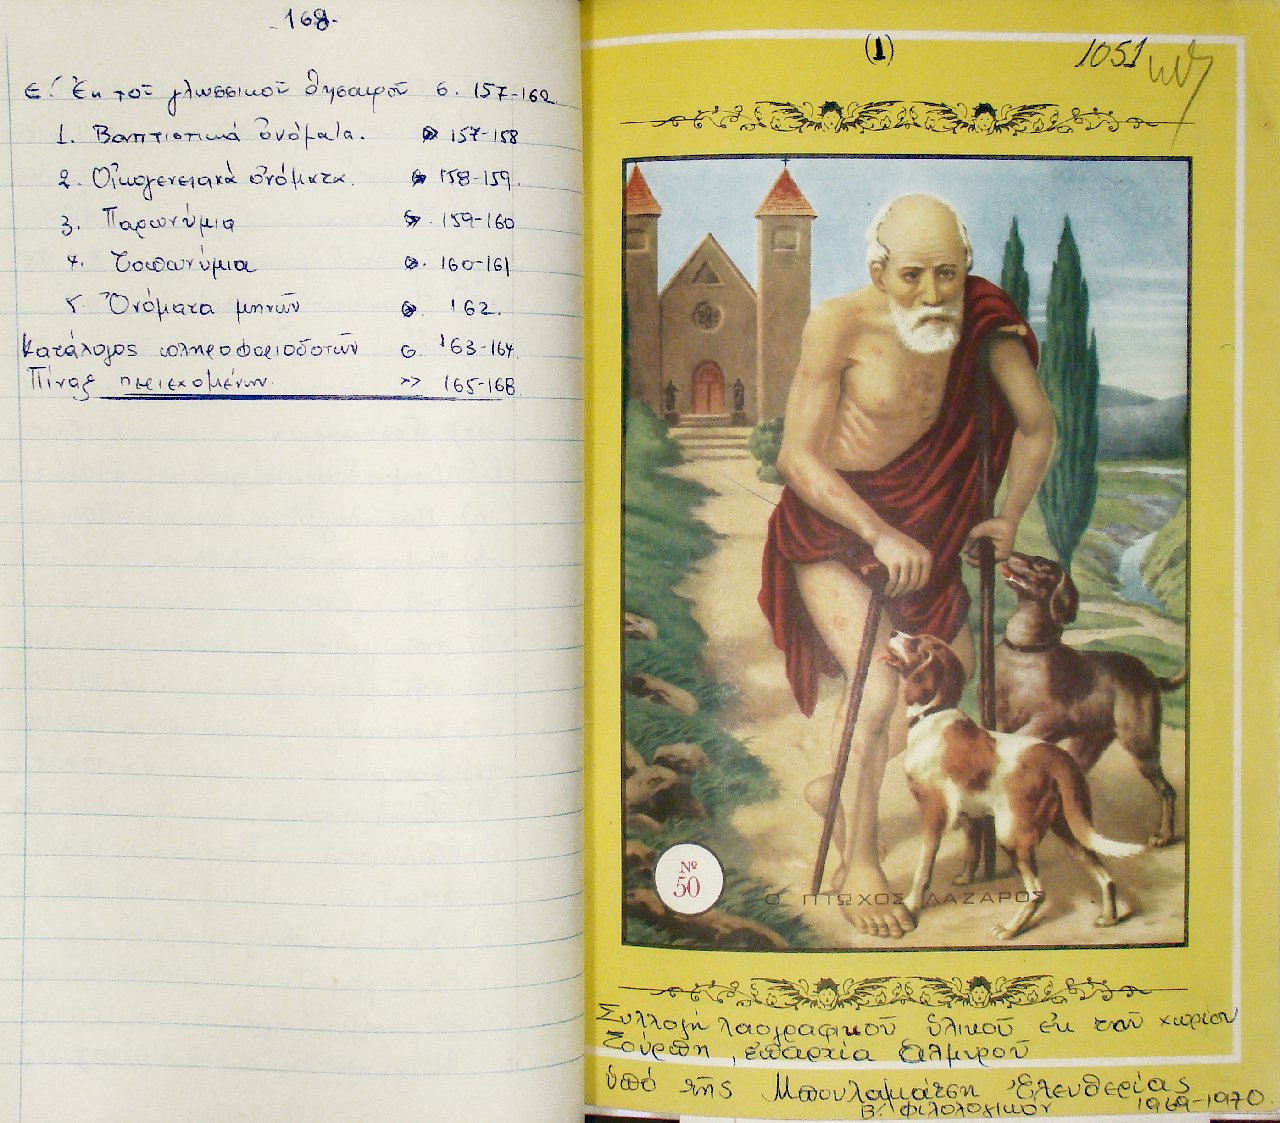 -168-
Ε.' Ἐκ τοῦ γλωσσικοῦ θησαυροῦ σ. 157-162
1. Βαπτιστικά ὀνόματα. » 157-158
2. Οἰκογενειακά ὀνόματα. » 158-159.
3. Παρωνύμια 159-160
4. Τοπωνύμια 160-161
5. Ὀνόματα μηνῶν 162.
Κατάλογος πληροφοριοδοτῶν σ. 163-164.
Πίναξ περιεχομένων. >> 165-168
(1)
1051
Nº
50
Ο ΠΤΩΧΟΣ ΛΑΖΑΡΟΣ
Συλλογή λαογραφικοῦ ὑλικοῦ ἐκ τοῦ χωρίου
Σούρπη, ἐπαρχία Ἁλμυροῦ
ὑπό τῆς Μπουλαμάτση Ἐλευθερίας
Β΄. φιλολογικόν 1969-1970.